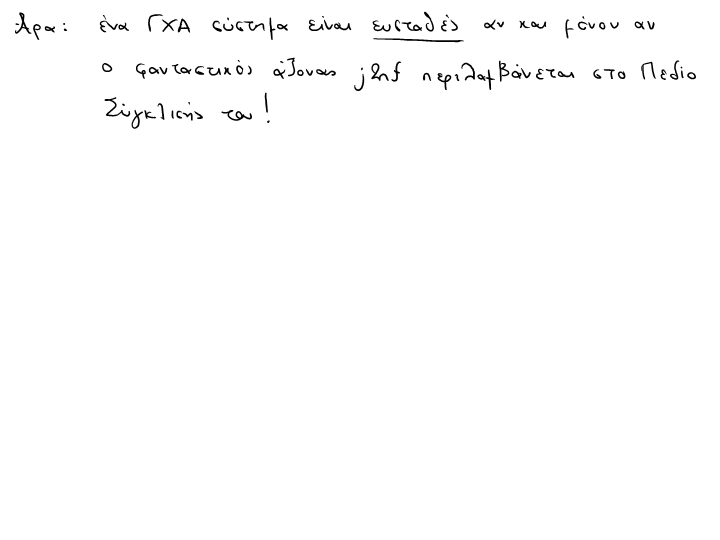 Άρα: ένα ΓΧΑ σύστημα είναι ευσταθές αν και μόνον αν
ο φανταστικός άξονας j2πf περιλαμβάνεται στο Πεδίο
Σύγκλισης του!